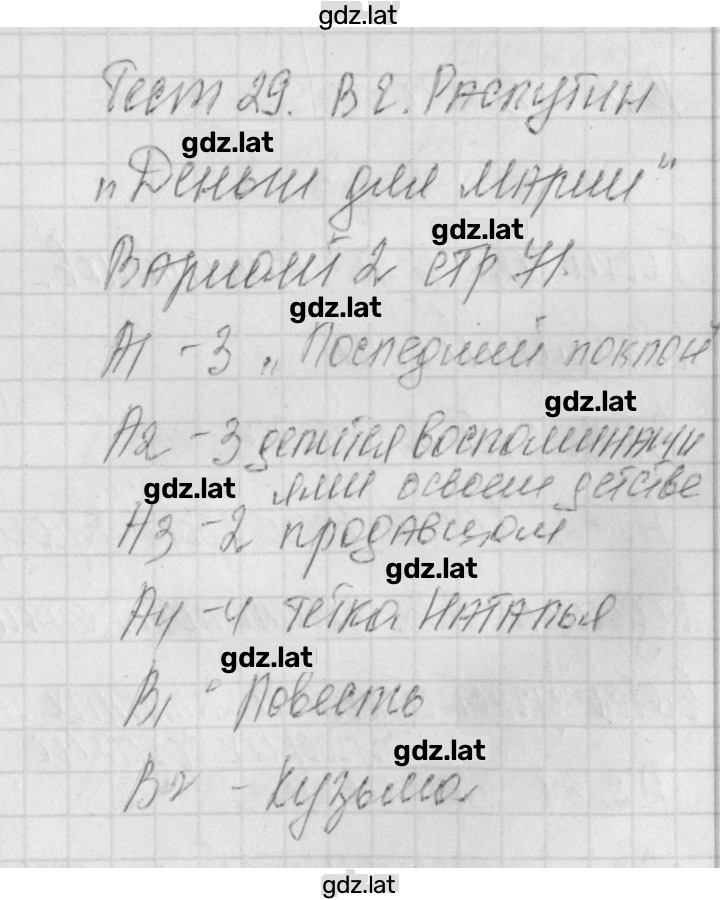 gdz.lat
Тест 29. В Г. Распутин
gdz.lat
"Деньги для Марии"
gdz.lat
Вариант 2 стр 71.
gdz.lat
А1 - 3 "Последний поклон"
gdz.lat
А2 - 3 делится воспоминани
gdz.lat ями о своем детстве
А3 - 2 продавцом
gdz.lat
А4 - 4 тётка Наталья
gdz.lat
В1 - Повесть
gdz.lat
В2 - Кузьма
gdz.lat